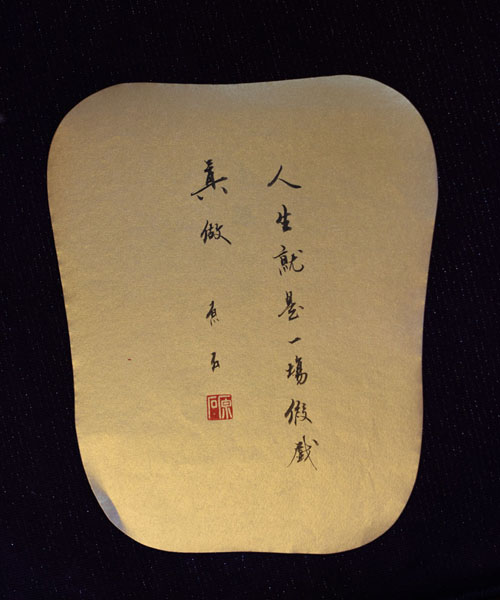 人生就是一場假戲
真做